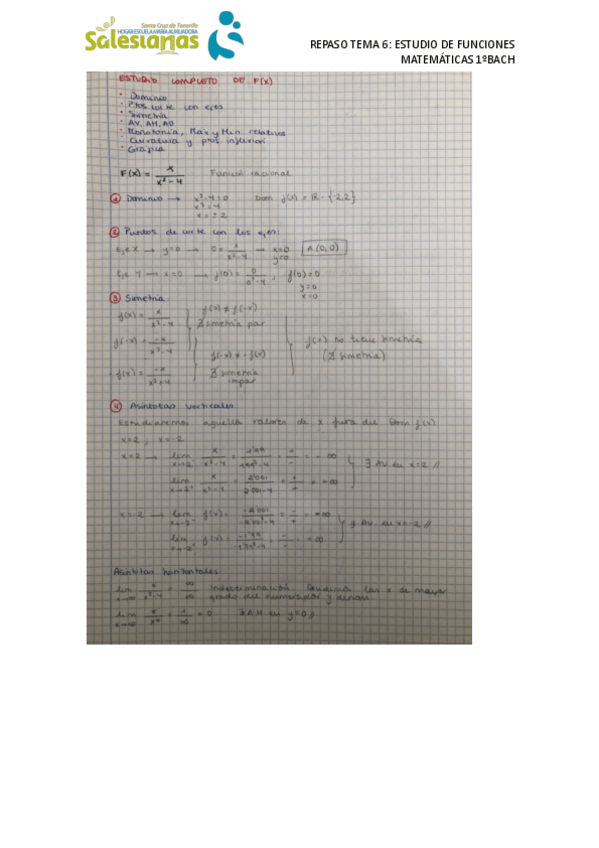 Santa Cruz de Tenerife
HOGAR ESCUELA MARÍA AUXILIADORA
Salesianas
REPASO TEMA 6: ESTUDIO DE FUNCIONES
MATEMÁTICAS 1ºBACH
ESTUDIO COMPLETO DE F(x)
• Dominio
• Ptos corte con ejes
• Simetría
• AV, AH, AO
• Monotonía, Max y Min relativos
• Curvatura y ptos inflexión
• Gráfica
F(x) = x / x² - 4 Función racional
① Dominio → x² - 4 = 0 Dom f(x) = R - {-2,2}
x² = 4
x = ± 2
② Puntos de corte con los ejes:
EJE X → y = 0 → 0 = x / x² - 4 → x = 0 A (0,0)
y = 0
EJE Y → x = 0 → f(0) = 0 / 0² - 4 ; f(0) = 0
y = 0
x = 0
③ Simetría
f(x) = x / x² - 4 f(x) ≠ f(-x)
∄ simetría par
f(-x) = -x / x² - 4 f(x) No tiene simetría
f(-x) ≠ -f(x) (∄ simetría)
-f(x) = -x / x² - 4 ∄ simetría
impar
④ Asíntotas verticales
Estudiaremos aquellos valores de x fuera del Dom f(x)
x = 2 , x = -2
x = 2 → lim x→2⁻ x / x² - 4 = 1'99 / 1'99² - 4 = + / - = - ∞
∃ AV en x = 2 //
lim x→2⁺ x / x² - 4 = 2'001 / 2'001 - 4 = + / + = + ∞
x = -2 → lim x→-2⁻ f(x) = -2'001 / -2'001² - 4 = - / + = + ∞
∃ AV en x = -2 //
lim x→-2⁺ f(x) = -1'99 / -1'99² - 4 = - / - = + ∞
Asíntotas horizontales
lim x→∞ x / x² - 4 = ∞ / ∞ Indeterminación. las x de mayor
grado del numerador y denom
lim x→∞ x / x² = 1 / ∞ = 0 ∃ A.H en y = 0 //